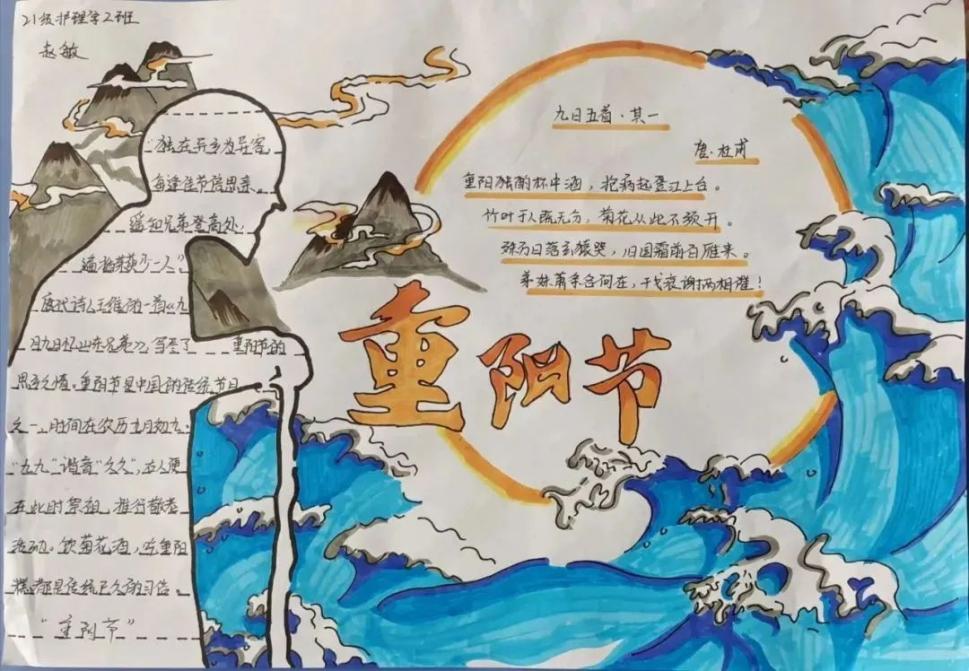 21级护理学2班
赵敏
"独在异乡为异客,
每逢佳节倍思亲。
遥知兄弟登高处,
遍插茱萸少一人"
唐代诗人王维的一首《九
月九日忆山东兄弟》,写尽了 重阳节的
思乡之情。重阳节是中国的传统节日
之一,时间在农历九月初九,
"九九"谐音"久久",古人便
在此时祭祖,推行敬老
活动。饮菊花酒,吃重阳
糕都是传统已久的习俗。
"重阳节"
九日五首·其一
唐·杜甫
重阳独酌杯中酒,抱病起登江上台。
竹叶于人既无分,菊花从此不须开。
殊方日落玄猿哭,旧国霜前白雁来。
弟妹萧条各何在,干戈衰谢两相催!
重阳节